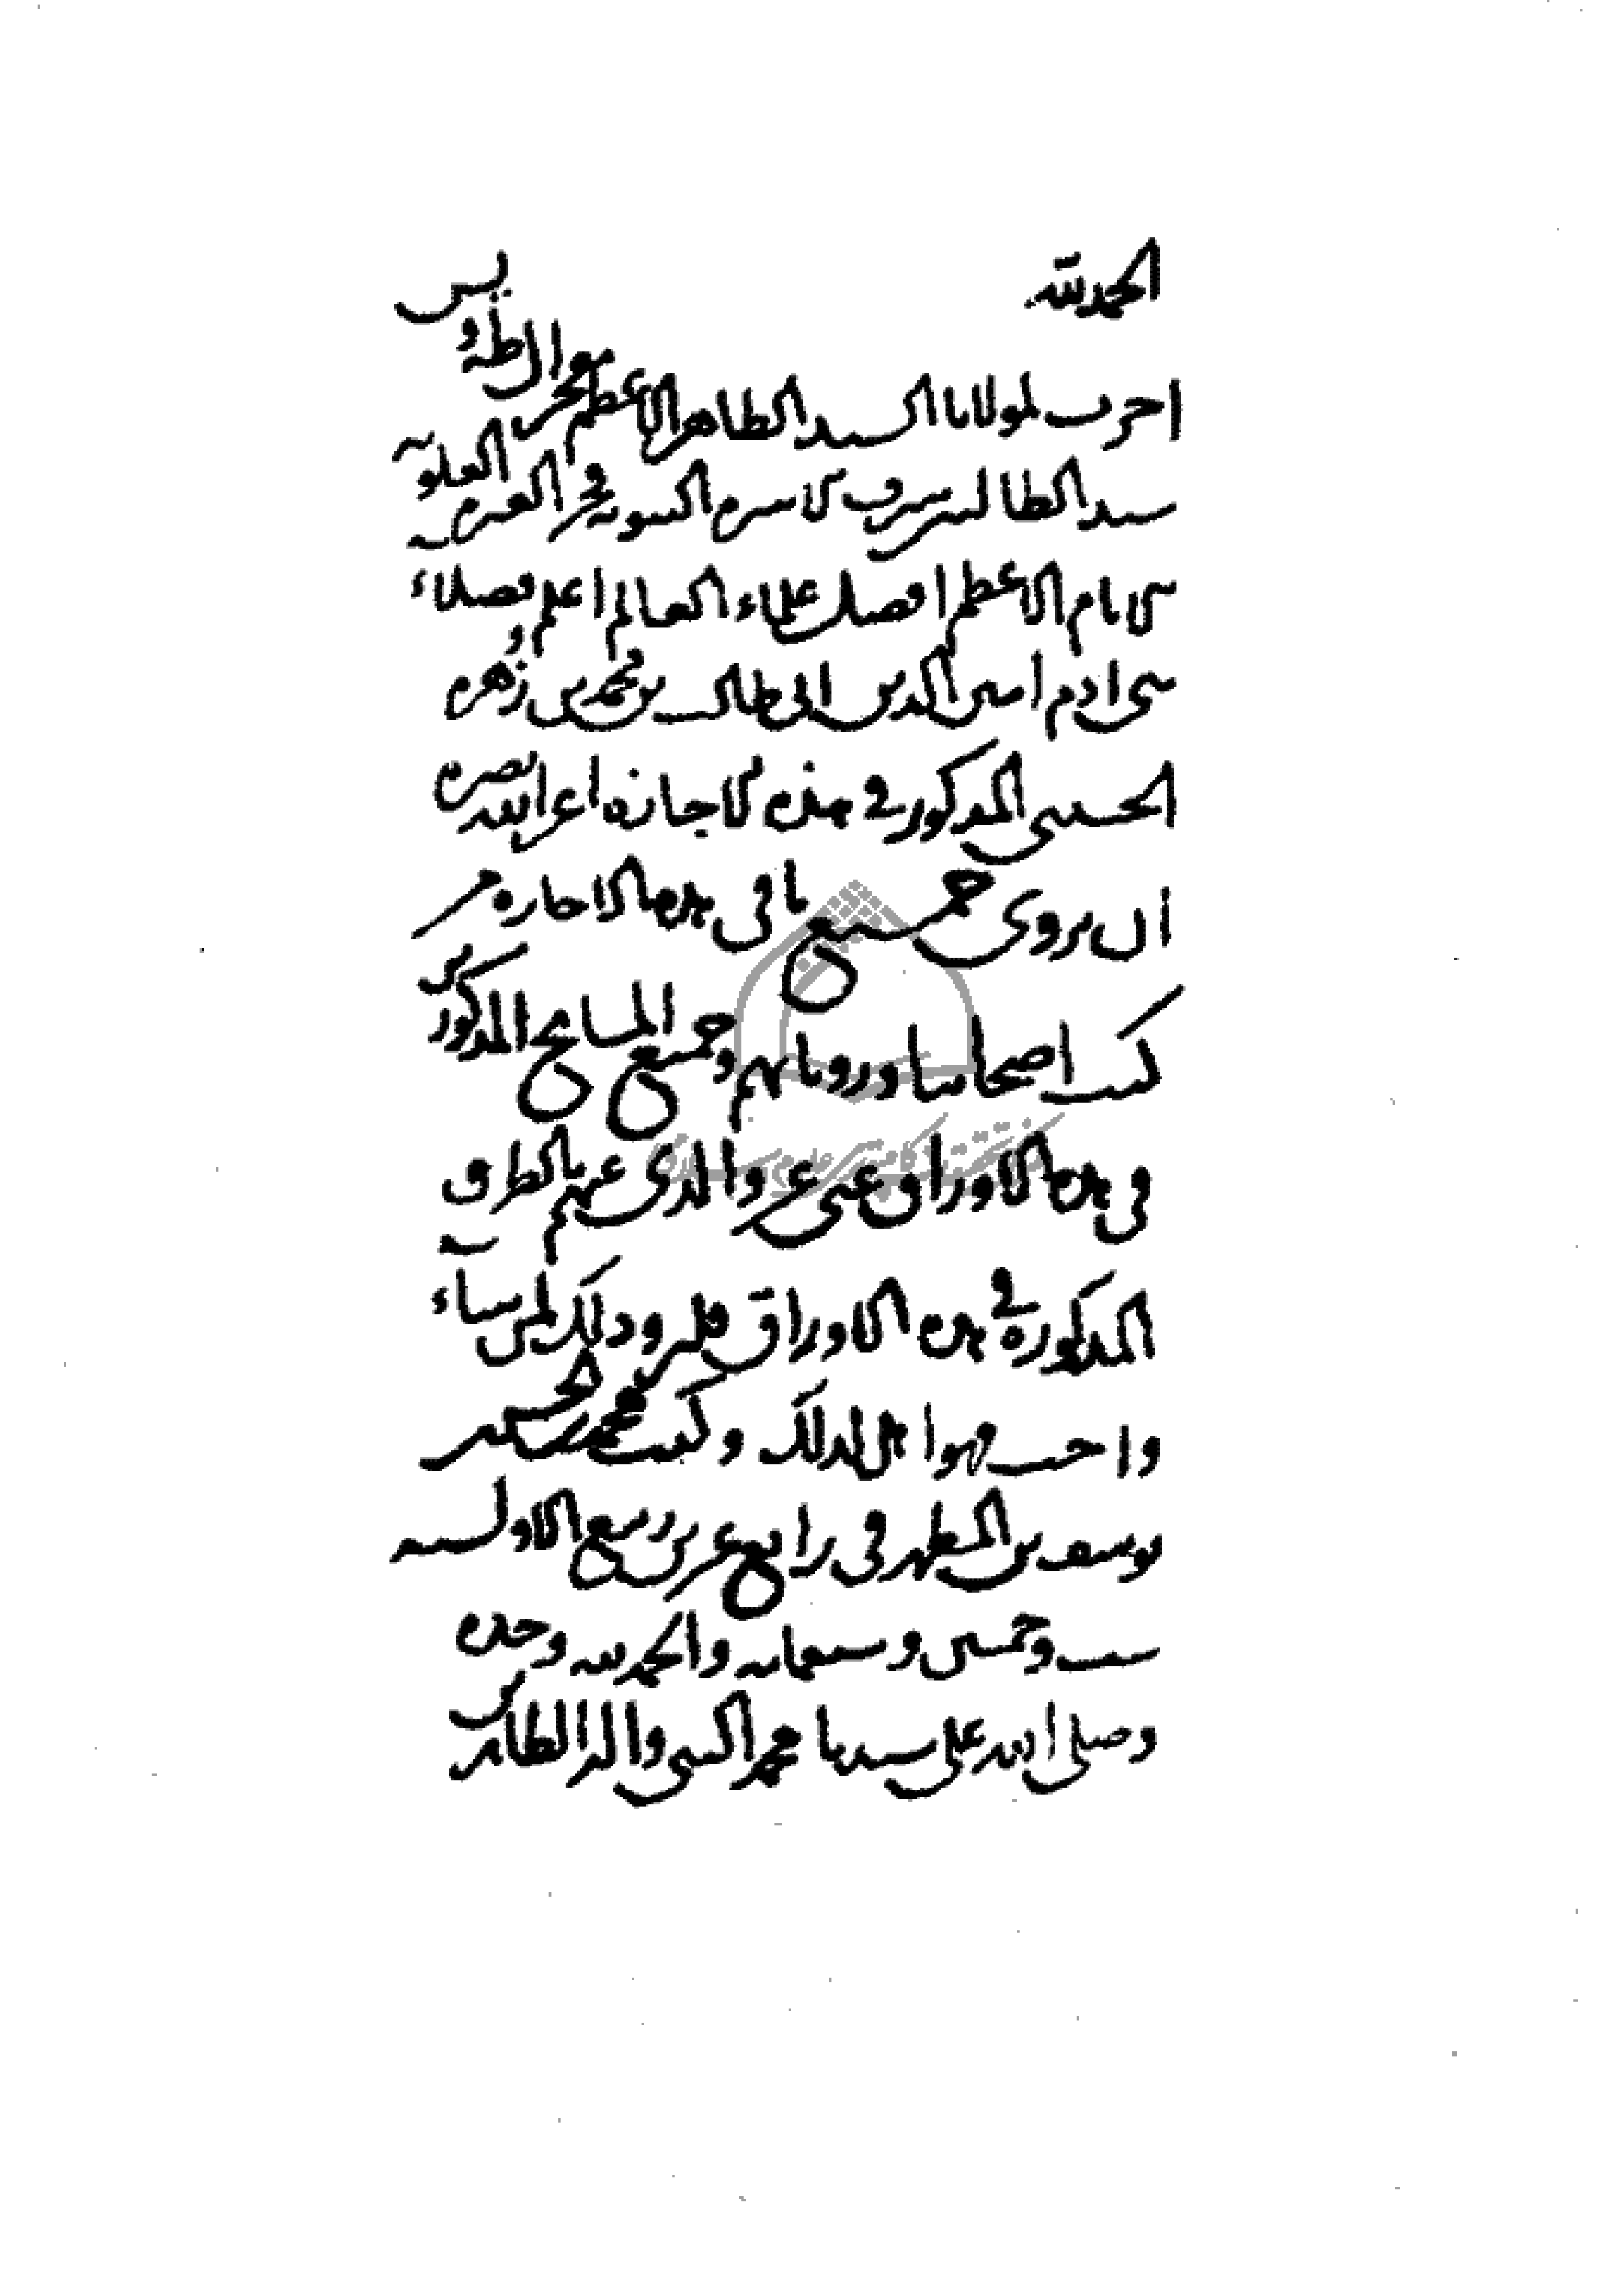 الحمد لله
اجزت لمولانا السيد الطاهر الاعظم فخر ال طه و يس
سيد الطالبيين شرف الاسرة النبوية فخر العترة العلوية
الامام الاعظم افضل علماء العالم اعلم فضلاء
بني ادم امين الدين ابي طالب بن محمد بن زهرة
الحسيني المذكور في هذه الاجازة اعز الله نصره
ان يروي جميع ما في هذه الاجازة من
كتب اصحابنا ورواياتهم وجميع المشايخ المذكورين
في هذه الاوراق عني عن والدي عنهم بالطرق
المذكورة في هذه الاوراق فليرو ذلك لمن شاء
واحب فهو اهل لذلك وكتب محمد بن الحسن بن
يوسف بن المطهر في رابع عشرين ربيع الاول سنة
ست وخمسين وسبعمائة والحمد لله وحده
وصلى الله على سيدنا محمد النبي واله الطاهرين